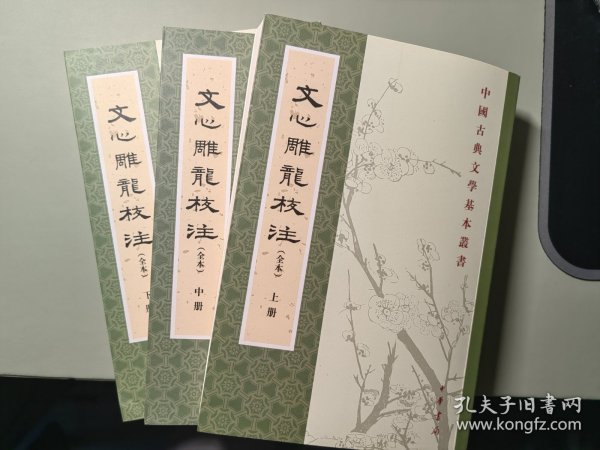 文心雕龍校注
（全本）
上册
中國古典文學基本叢書
中華書局
文心雕龍校注
（全本）
中册
文心雕龍校注
（全本）
下册
孔夫子旧书网
www.kongfz.com